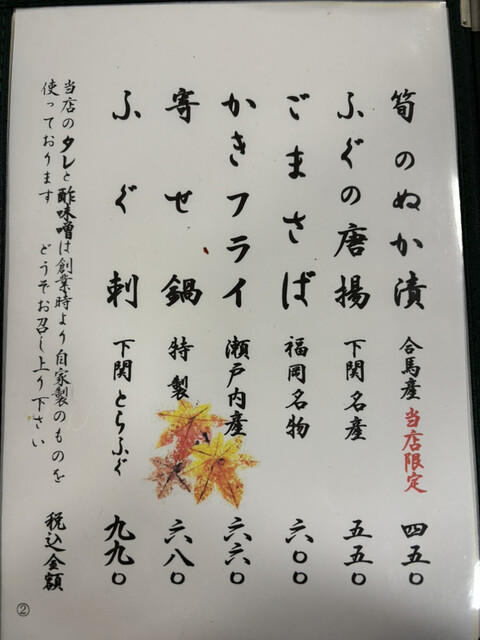 筍のぬか漬 合馬産 当店限定 四五〇
ふぐの唐揚 下関名産 五五〇
ごまさば 福岡名物 六〇〇
かきフライ 瀬戸内産 六六〇
寄せ鍋 特製 六八〇
ふぐ刺 下関とらふぐ 九九〇
税込金額
当店のタレと酢味噌は創業時より自家製のものを
使っております どうぞお召し上り下さい
②